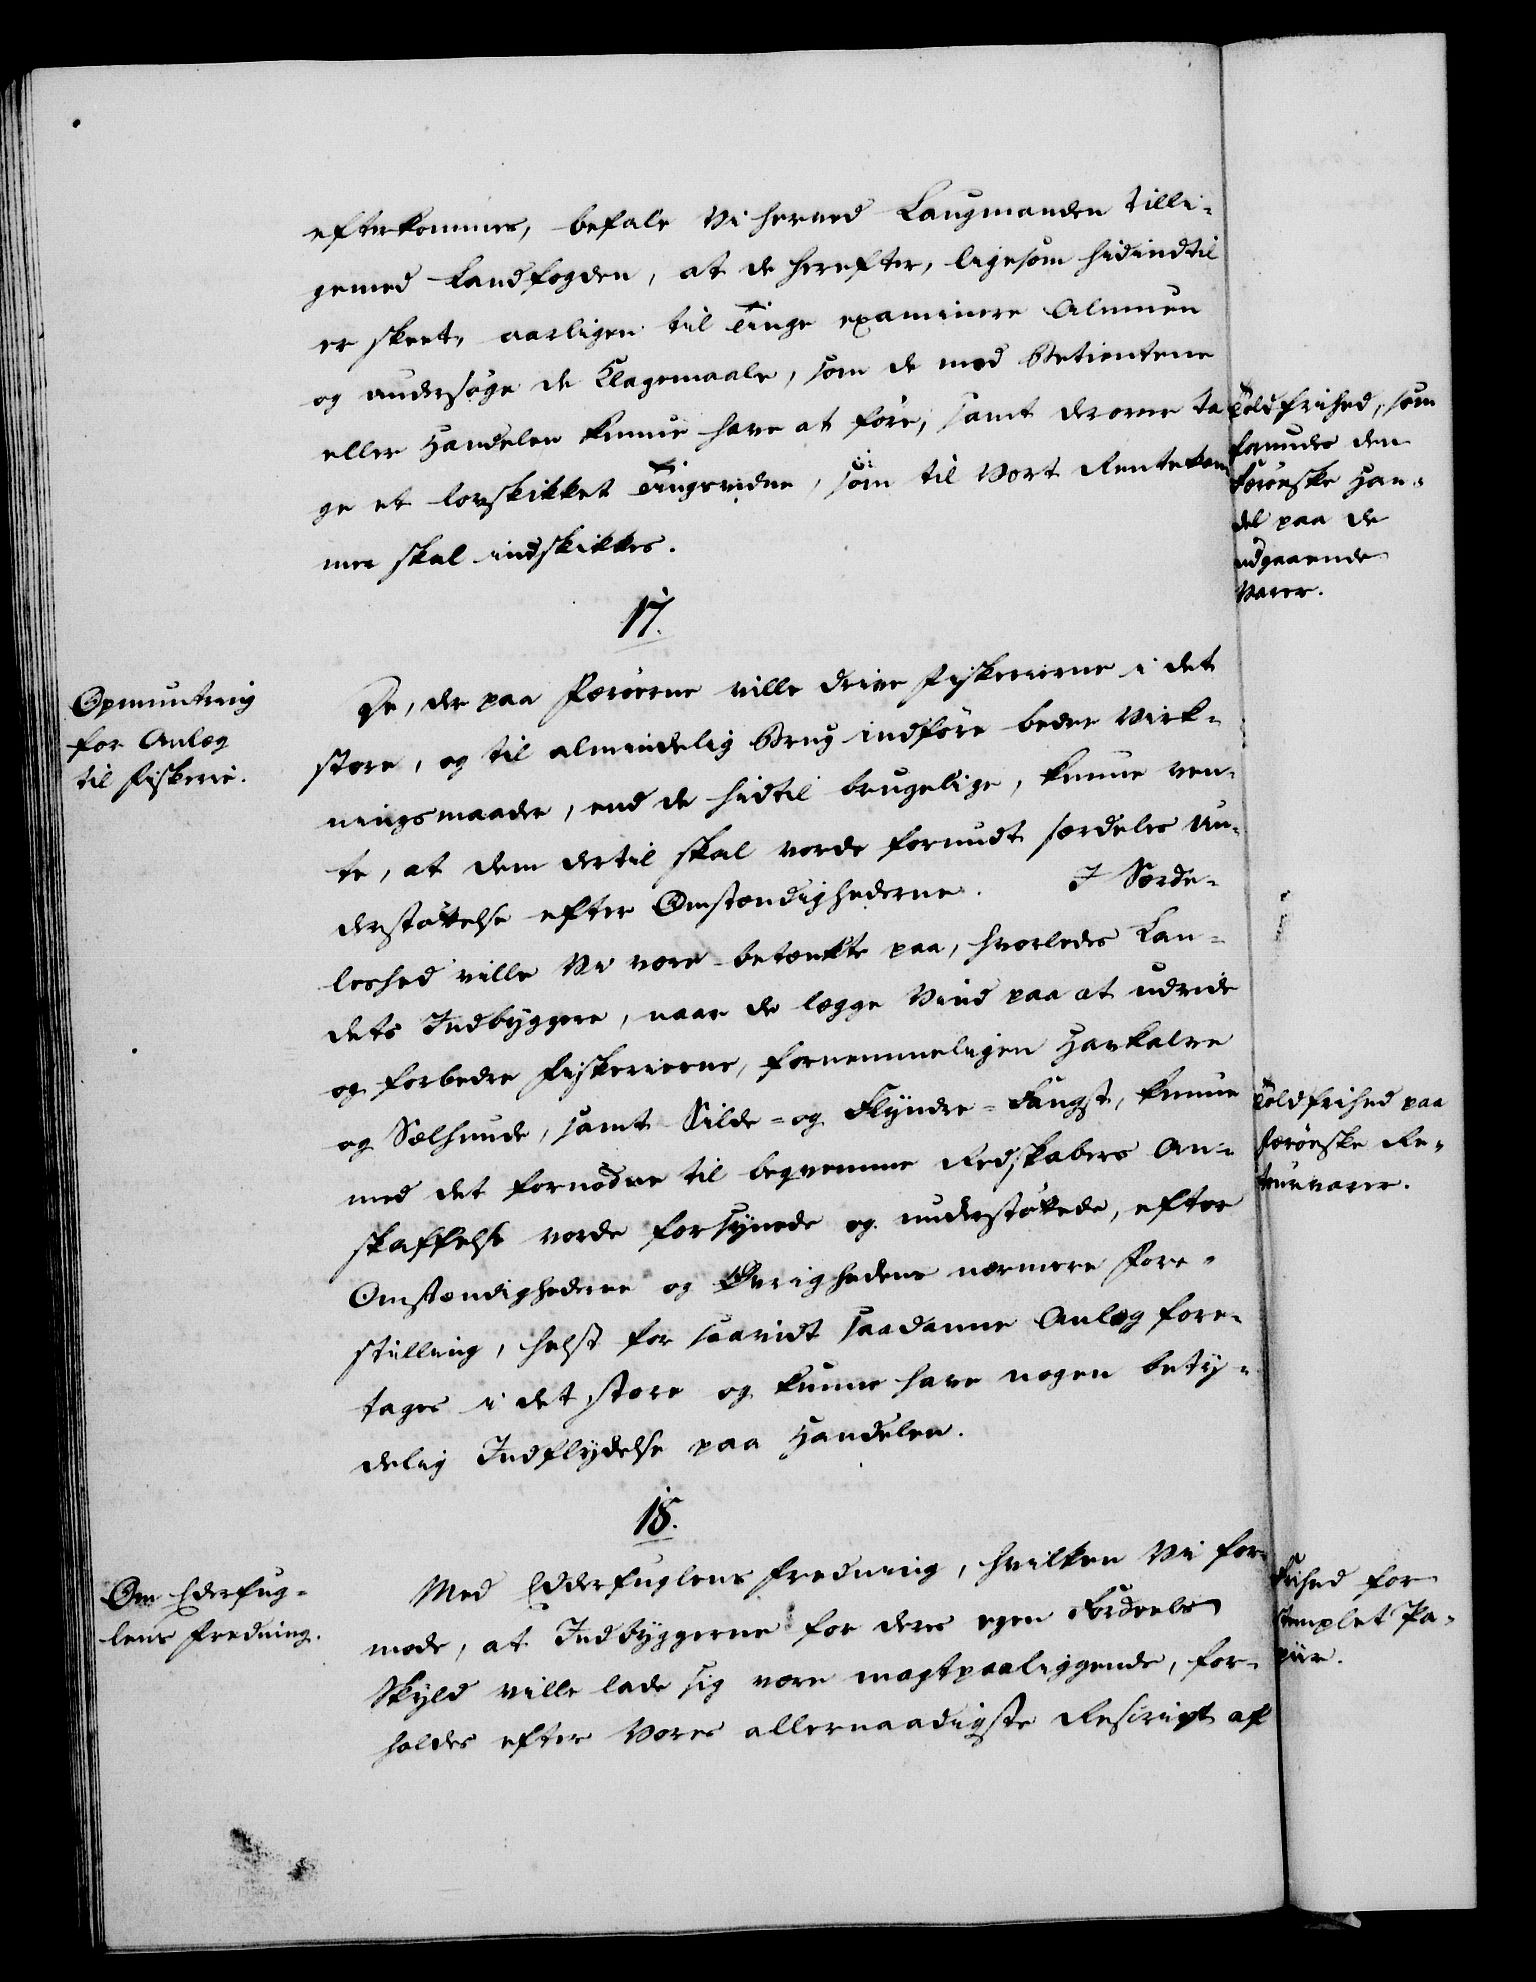 efterkommes, befale Vi herved Laugmanden tilli-
gemed Landfogden, at de herefter, ligesom hidindtil
er skeet, aarligen til Tinge examinere Almuen
og undersøge de Klagemaale, som de mod Betienterne
eller Handelen kunne have at føre, samt derover ta
ge et lovskikket Tingsvidne, som til Vort Rentekam
mer skal indskikkes.
17.
Opmuntring
for Anlæg
til Fiskerie.
De, der paa Færøerne ville drive Fiskerierne i det
store, og til almindelig Brug indføre bedre Virk-
ningsmaader, end de hidtil brugelige, kunne ven-
te, at dem dertil skal vorde forundt særdeles Un-
derstøttelse efter Omstændighederne. I Særde-
leshed ville Vi være betænkte paa, hvorledes Lan-
dets Indbyggere, naar de lægge Vind paa at udvide
og forbedre Fiskerierne, fornemmeligen Havkalve
og Sælhunde, samt Silde- og Flyndre-Fangst, kunne
med det fornødne til beqvemme Redskabers An-
skaffelse vorde forsynede og understøttede, efter
Omstændighederne og Øvrighedens nærmere Fore-
stilling, helst for saavidt saadanne Anlæg fore-
tages i det store og kunne have nogen betÿ-
delig Indflydelse paa Handelen.
18.
Om Ederfug-
lens Fredning.
Med Edderfuglens Fredning, hvilken Vi for-
mode, at Indbyggerne for deres egen Fordeels
Skyld ville lade sig være magtpaaliggende, for-
holdes efter Vores allernaadigste Rescript af
Toldfrihed, som
forundes den
Færøeske Han-
del paa de
udgaaende
Varer.
Toldfrihed paa
færøeske Re-
tourvarer.
Frihed for
stemplet Pa-
piir.